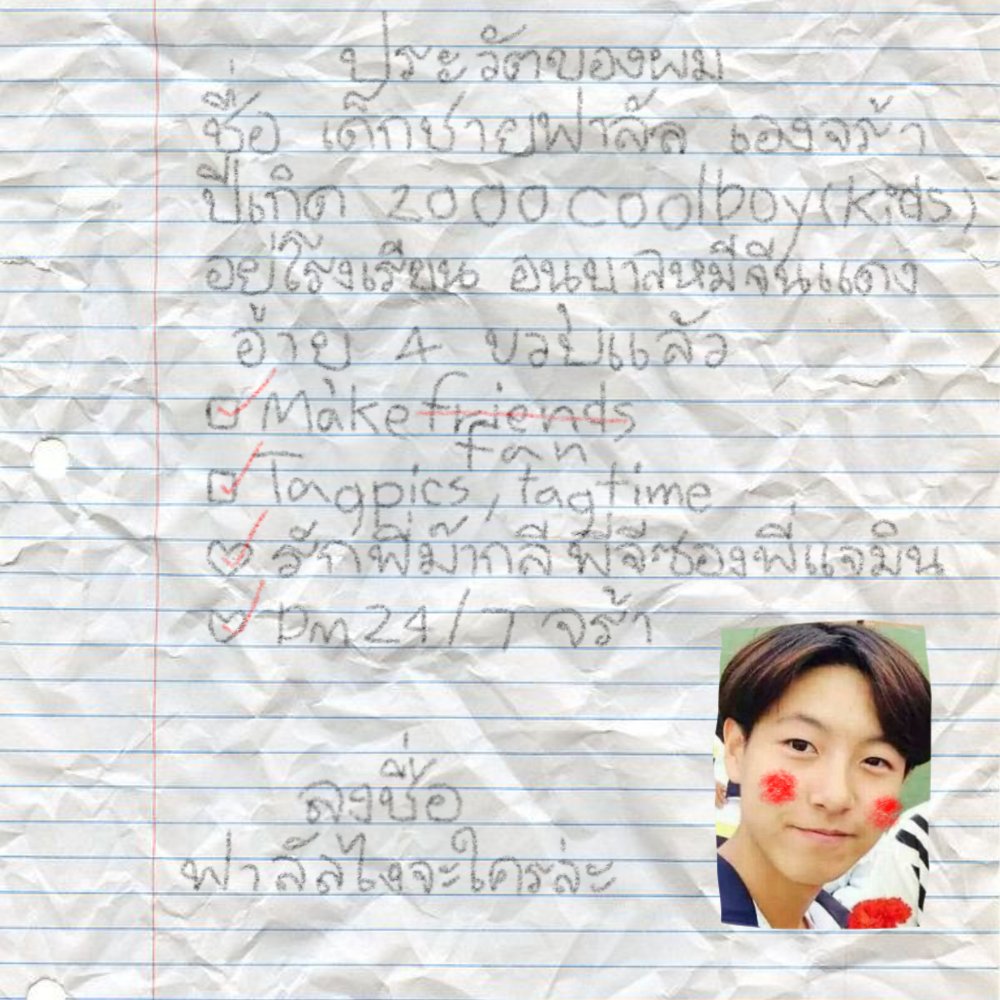 ประวัตของผม
ชื่อ เด็กชายฟาลัล เองจร้า
ปีเกิด 2000 coolboy(kids)
อยู่โรงเรียน อนุบาลหมีจีนแดง
อู๋าย 4 ขวบแล้ว
Make friends
fan
Tagpics, tagtime
รักพี่ม๊ากลี พี่จีซองพี่แจมิน
Dm24/7 จร้า
ลงชื่อ
ฟาลัลไงจะใครล่ะ